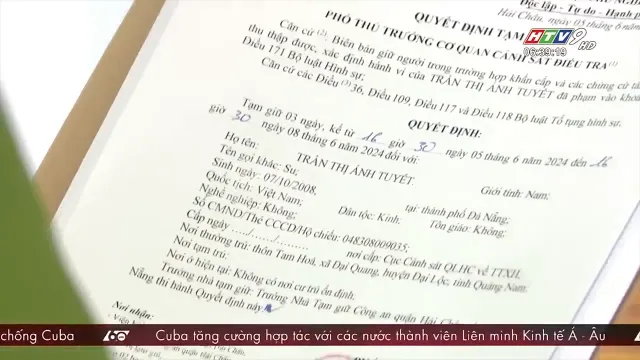 Độc lập - Tự do - Hạnh p
Hải Châu, ngày 05 tháng 6
QUYẾT ĐỊNH TẠM
PHÓ THỦ TRƯỞNG CƠ QUAN CẢNH SÁT ĐIỀU TRA
HTV9 HD
06:39:19
Căn cứ Biên bản giữ người trong trường hợp khẩn cấp và các chứng cứ tà
thu thập được, xác định hành vi của TRẦN THỊ ÁNH TUYẾT đã phạm vào khoả
Điều 171 Bộ luật Hình sự;
Căn cứ các Điều 36, Điều 109, Điều 117 và Điều 118 Bộ luật Tố tụng hình sự,
QUYẾT ĐỊNH:
Tạm giữ 03 ngày, kể từ 16 giờ 30 ngày 05 tháng 6 năm 2024 đến 16
giờ 30 ngày 08 tháng 6 năm 2024 đối với:
Họ tên: TRẦN THỊ ÁNH TUYẾT.
Tên gọi khác: Su; Giới tính: Nam;
Sinh ngày: 07/10/2008, tại thành phố Đà Nẵng;
Quốc tịch: Việt Nam; Dân tộc: Kinh; Tôn giáo: Không;
Nghề nghiệp: Không;
Số CMND/Thẻ CCCD/Hộ chiếu: 048308009035;
Cấp ngày ..../..../........ nơi cấp: Cục Cảnh sát QLHC về TTXH.
Nơi thường trú: thôn Tam Hoà, xã Đại Quang, huyện Đại Lộc, tỉnh Quảng Nam.
Nơi tạm trú:
Nơi ở hiện tại: Không có nơi cư trú ổn định.
Trưởng nhà tạm giữ: Trưởng Nhà Tạm giữ Công an quận Hải Châ
Nẵng thi hành Quyết định này.
Nơi nhận:
chống Cuba 60 Cuba tăng cường hợp tác với các nước thành viên Liên minh Kinh tế Á - Âu